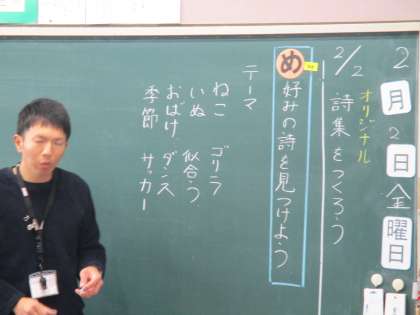 2月2日金曜日
2/2 オリジナル詩集をつくろう
め 好みの詩を見つけよう
テーマ
ねこ ゴリラ
いぬ 似合う
おばけ ダンス
季節 サッカー